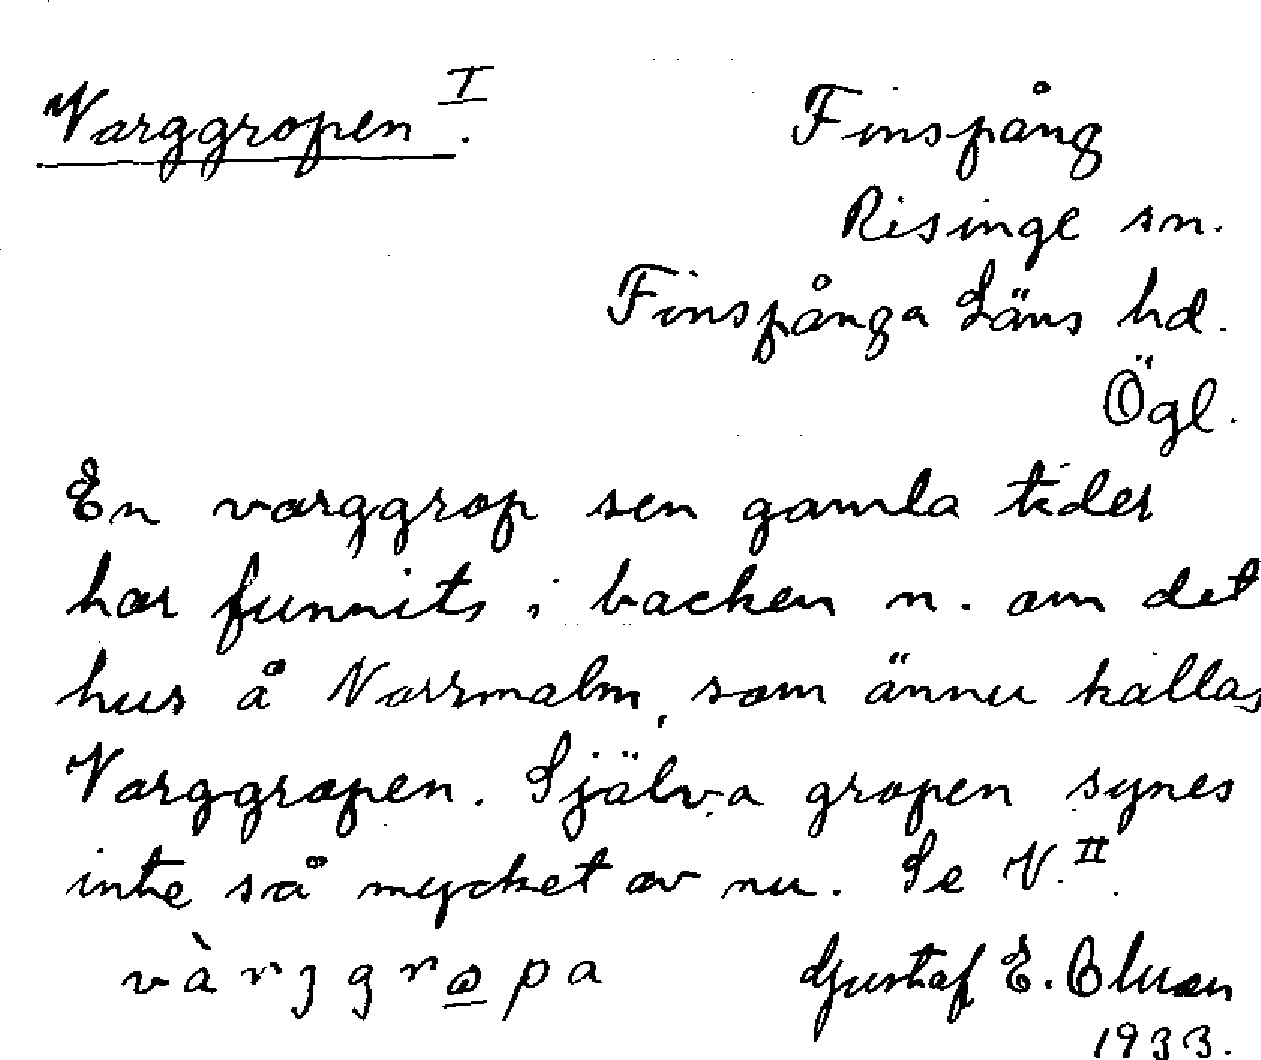 Varggropen I.
Finspång
Risinge sn.
Finspånga Läns hd.
Ögl.
En varggrop sen gamla tider
har funnits i backen n. om det
hus å Norrmalm, som ännu kallas
Varggropen. Själva gropen synes
inte så mycket av nu. Se V. II.
Gustaf E.
1933.